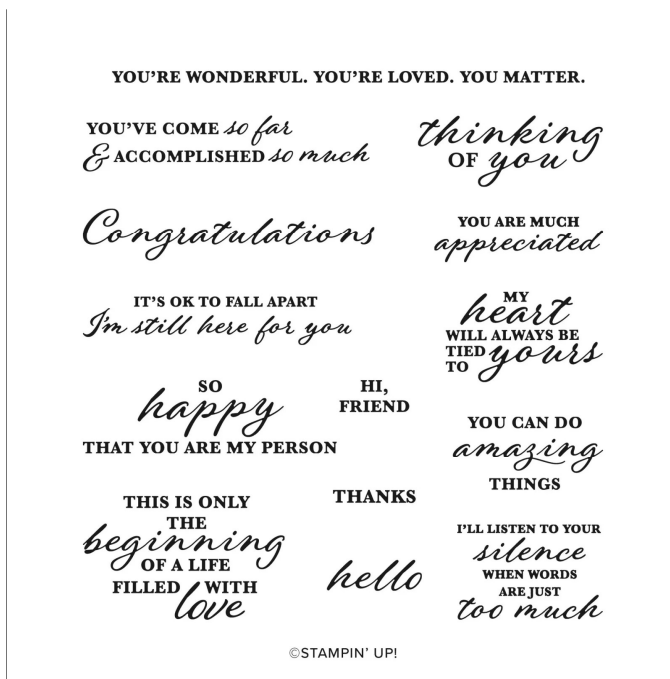 YOU'RE WONDERFUL. YOU'RE LOVED. YOU MATTER.
YOU'VE COME so far
& ACCOMPLISHED so much
thinking
OF you
Congratulations
YOU ARE MUCH
appreciated
IT'S OK TO FALL APART
I'm still here for you
MY
heart
WILL ALWAYS BE
TIED yours
TO
SO
happy
THAT YOU ARE MY PERSON
HI,
FRIEND
YOU CAN DO
amazing
THINGS
THIS IS ONLY
THE
beginning
OF A LIFE
FILLED WITH
love
THANKS
hello
I'LL LISTEN TO YOUR
silence
WHEN WORDS
ARE JUST
too much
©STAMPIN' UP!